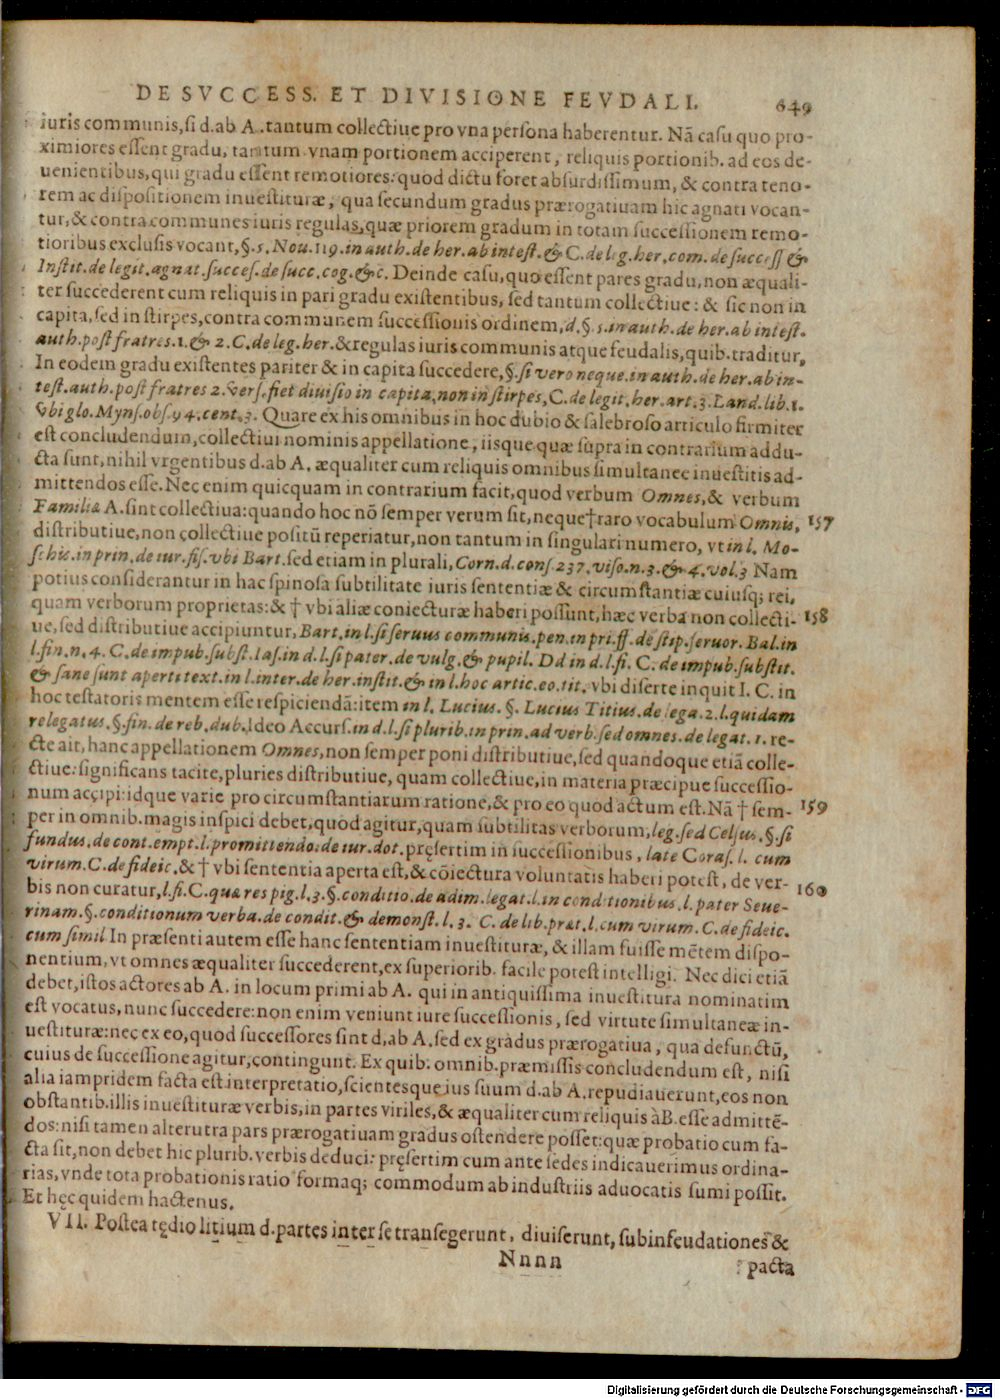 DE SVCCESS. ET DIVISIONE FEVDALI. 649
iuris communis, si d. ab A. tantum collectiue pro vna persona haberentur. Nã casu quo pro-
ximiores essent gradu, tantum vnam portionem acciperent, reliquis portionib. ad eos de-
uenientibus, qui gradu essent remotiores: quod dictu foret absurdissimum, & contra teno-
rem ac dispositionem inuestituræ, qua secundum gradus prærogatiuam hic agnati vocan-
tur, & contra communes iuris regulas, quæ priorem gradum in totam successionem remo-
tioribus exclusis vocant, §. 1. Nou. 119. in auth. de her. ab intest. & C. de leg. her. com. de success &
Instit. de legit. agnat. succes. de succ. cog. & c. Deinde casu, quo essent pares gradu, non æquali-
ter succederent cum reliquis in pari gradu existentibus, sed tantum collectiue: & sic non in
capita, sed in stirpes, contra communem successionis ordinem, d. §. 1. in auth. de her. ab intest.
auth. post fratres. 1. & 2. C. de leg. her. & regulas iuris communis atque feudalis, quib. traditur,
In eodem gradu existentes pariter & in capita succedere, §. si vero neque. in auth. de her. ab in-
test. auth. post fratres 2. vers. fiet diuisio in capita, non in stirpes, C. de legit. her. art. 3. Land. lib. 1.
vbi glo. Myns. obs. 94. cent. 3. Quare ex his omnibus in hoc dubio & salebroso articulo firmiter
est concludendum, collectiui nominis appellatione, iisque quæ supra in contrarium addu-
cta sunt, nihil vrgentibus d. ab A. æqualiter cum reliquis omnibus simultanee inuestitis ad-
mittendos esse. Nec enim quicquam in contrarium facit, quod verbum Omnes, & verbum
Familia A. sint collectiua: quando hoc nõ semper verum sit, neque † raro vocabulum Omnis, 157
distributiue, non collectiue positũ reperiatur, non tantum in singulari numero, vt in l. Mo-
schis. in prin. de iur. fis. vbi Bart. sed etiam in plurali, Corn. d. cons. 237. viso. n. 3. & 4. vol. 3 Nam
potius considerantur in hac spinosa subtilitate iuris sententiæ & circumstantiæ cuiusq; rei,
quam verborum proprietas: & † vbi aliæ coniecturæ haberi possunt, hæc verba non collecti- 158
ue, sed distributiue accipiuntur, Bart. in l. si seruus communis. pen. in pri. ff. de stip. seruor. Bal. in
l. fin. n. 4. C. de impub. subst. Ias. in d. l. si pater. de vulg. & pupil. Dd in d. l. fi. C. de impub. substit.
& sane sunt aperti text. in l. inter. de her. instit. & in l. hoc artic. eo. tit. vbi diserte inquit I. C. in
hoc testatoris mentem esse respiciendã: item in l. Lucius. §. Lucius Titius. de lega. 2. l. quidam
relegatus. §. fin. de reb. dub. Ideo Accurs. in d. l. si plurib. in prin. ad verb. sed omnes. de legat. 1. re-
cte ait, hanc appellationem Omnes, non semper poni distributiue, sed quandoque etiã colle-
ctiue: significans tacite, pluries distributiue, quam collectiue, in materia præcipue successio-
num accipi: idque varie pro circumstantiarum ratione, & pro eo quod actum est. Nã † sem- 159
per in omnib. magis inspici debet, quod agitur, quam subtilitas verborum, leg. sed Celsus. §. si
fundus. de cont. empt. l. promittendo: de iur. dot. pręsertim in successionibus, late Coras. l. cum
virum. C. de fideic. & † vbi sententia aperta est, & cõiectura voluntatis haberi potest, de ver- 160
bis non curatur, l. fi. C. quæ res pig. l. 3. §. conditio. de adim. legat. l. in conditionibus. l. pater Seue-
rinam. §. conditionum verba. de condit. & demonst. l. 3. C. de lib. præt. l. cum virum. C. de fideic.
cum simil In præsenti autem esse hanc sententiam inuestituræ, & illam fuisse mẽtem dispo-
nentium, vt omnes æqualiter succederent, ex superiorib. facile potest intelligi. Nec dici etiã
debet, istos actores ab A. in locum primi ab A. qui in antiquissima inuestitura nominatim
est vocatus, nunc succedere: non enim veniunt iure successionis, sed virtute simultaneæ in-
uestituræ: nec ex eo, quod successores sint d. ab A. sed ex gradus prærogatiua, qua defunctũ,
cuius de successione agitur, contingunt. Ex quib. omnib. præmissis concludendum est, nisi
alia iampridem facta est interpretatio, scientesque ius suum d. ab A. repudiauerunt, eos non
obstantib. illis inuestituræ verbis, in partes viriles, & æqualiter cum reliquis à B. esse admittẽ-
dos: nisi tamen alterutra pars prærogatiuam gradus ostendere posset: quæ probatio cum fa-
cta sit, non debet hic plurib. verbis deduci: pręsertim cum ante sedes indicauerimus ordina-
rias, vnde tota probationis ratio formaq; commodum ab industriis aduocatis sumi possit.
Et hęc quidem hactenus.
VII. Postea tędio litium d. partes inter se transegerunt, diuiserunt, subinfeudationes &
Nnnn pacta
Digitalisierung gefördert durch die Deutsche Forschungsgemeinschaft - DFG